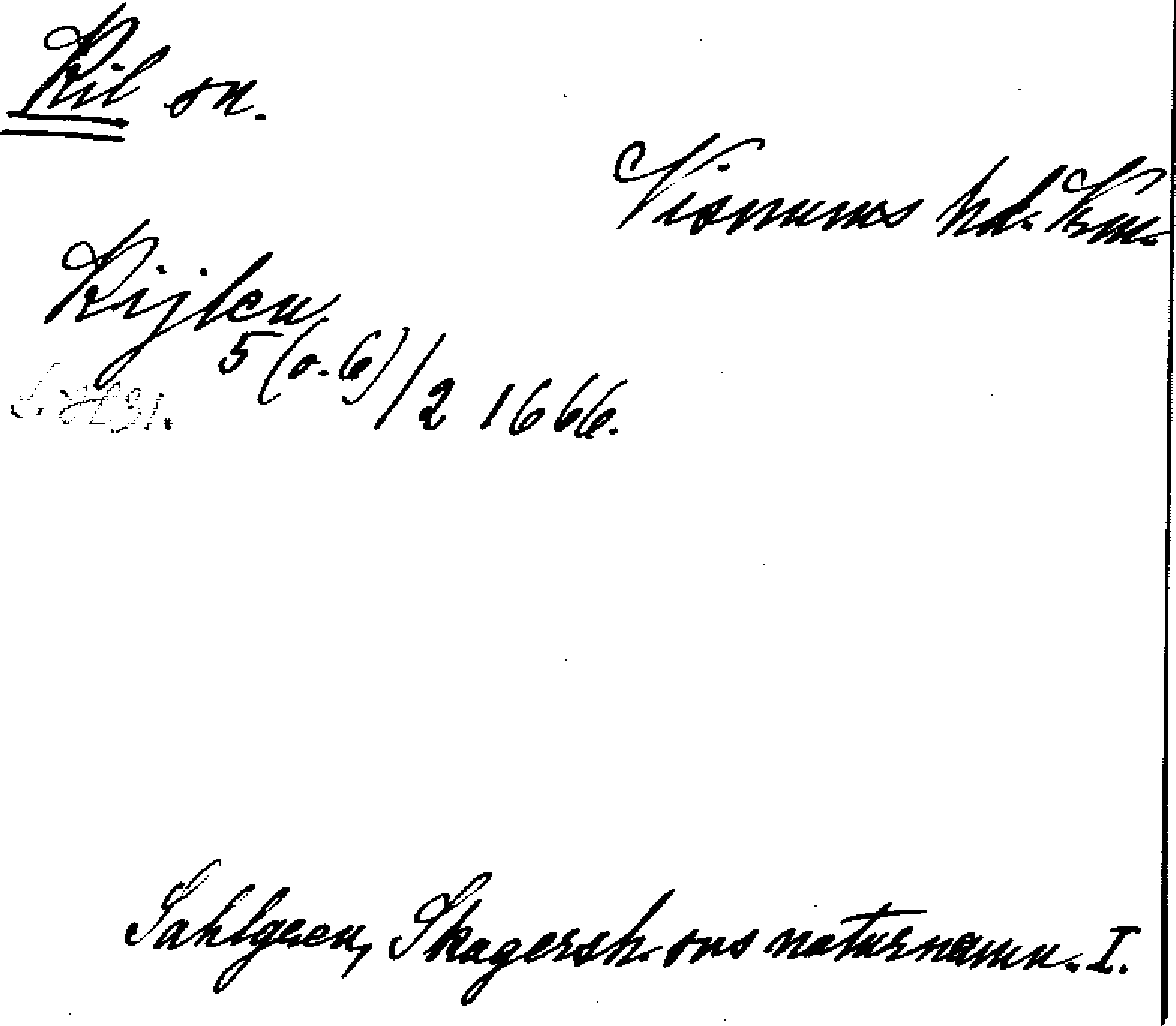 Kil sn.
Visnums hd. Vrm.
Kijlen
5 (o. 6)/2 1666.
Sahlgren, Skagersh. sns naturnamn. I.